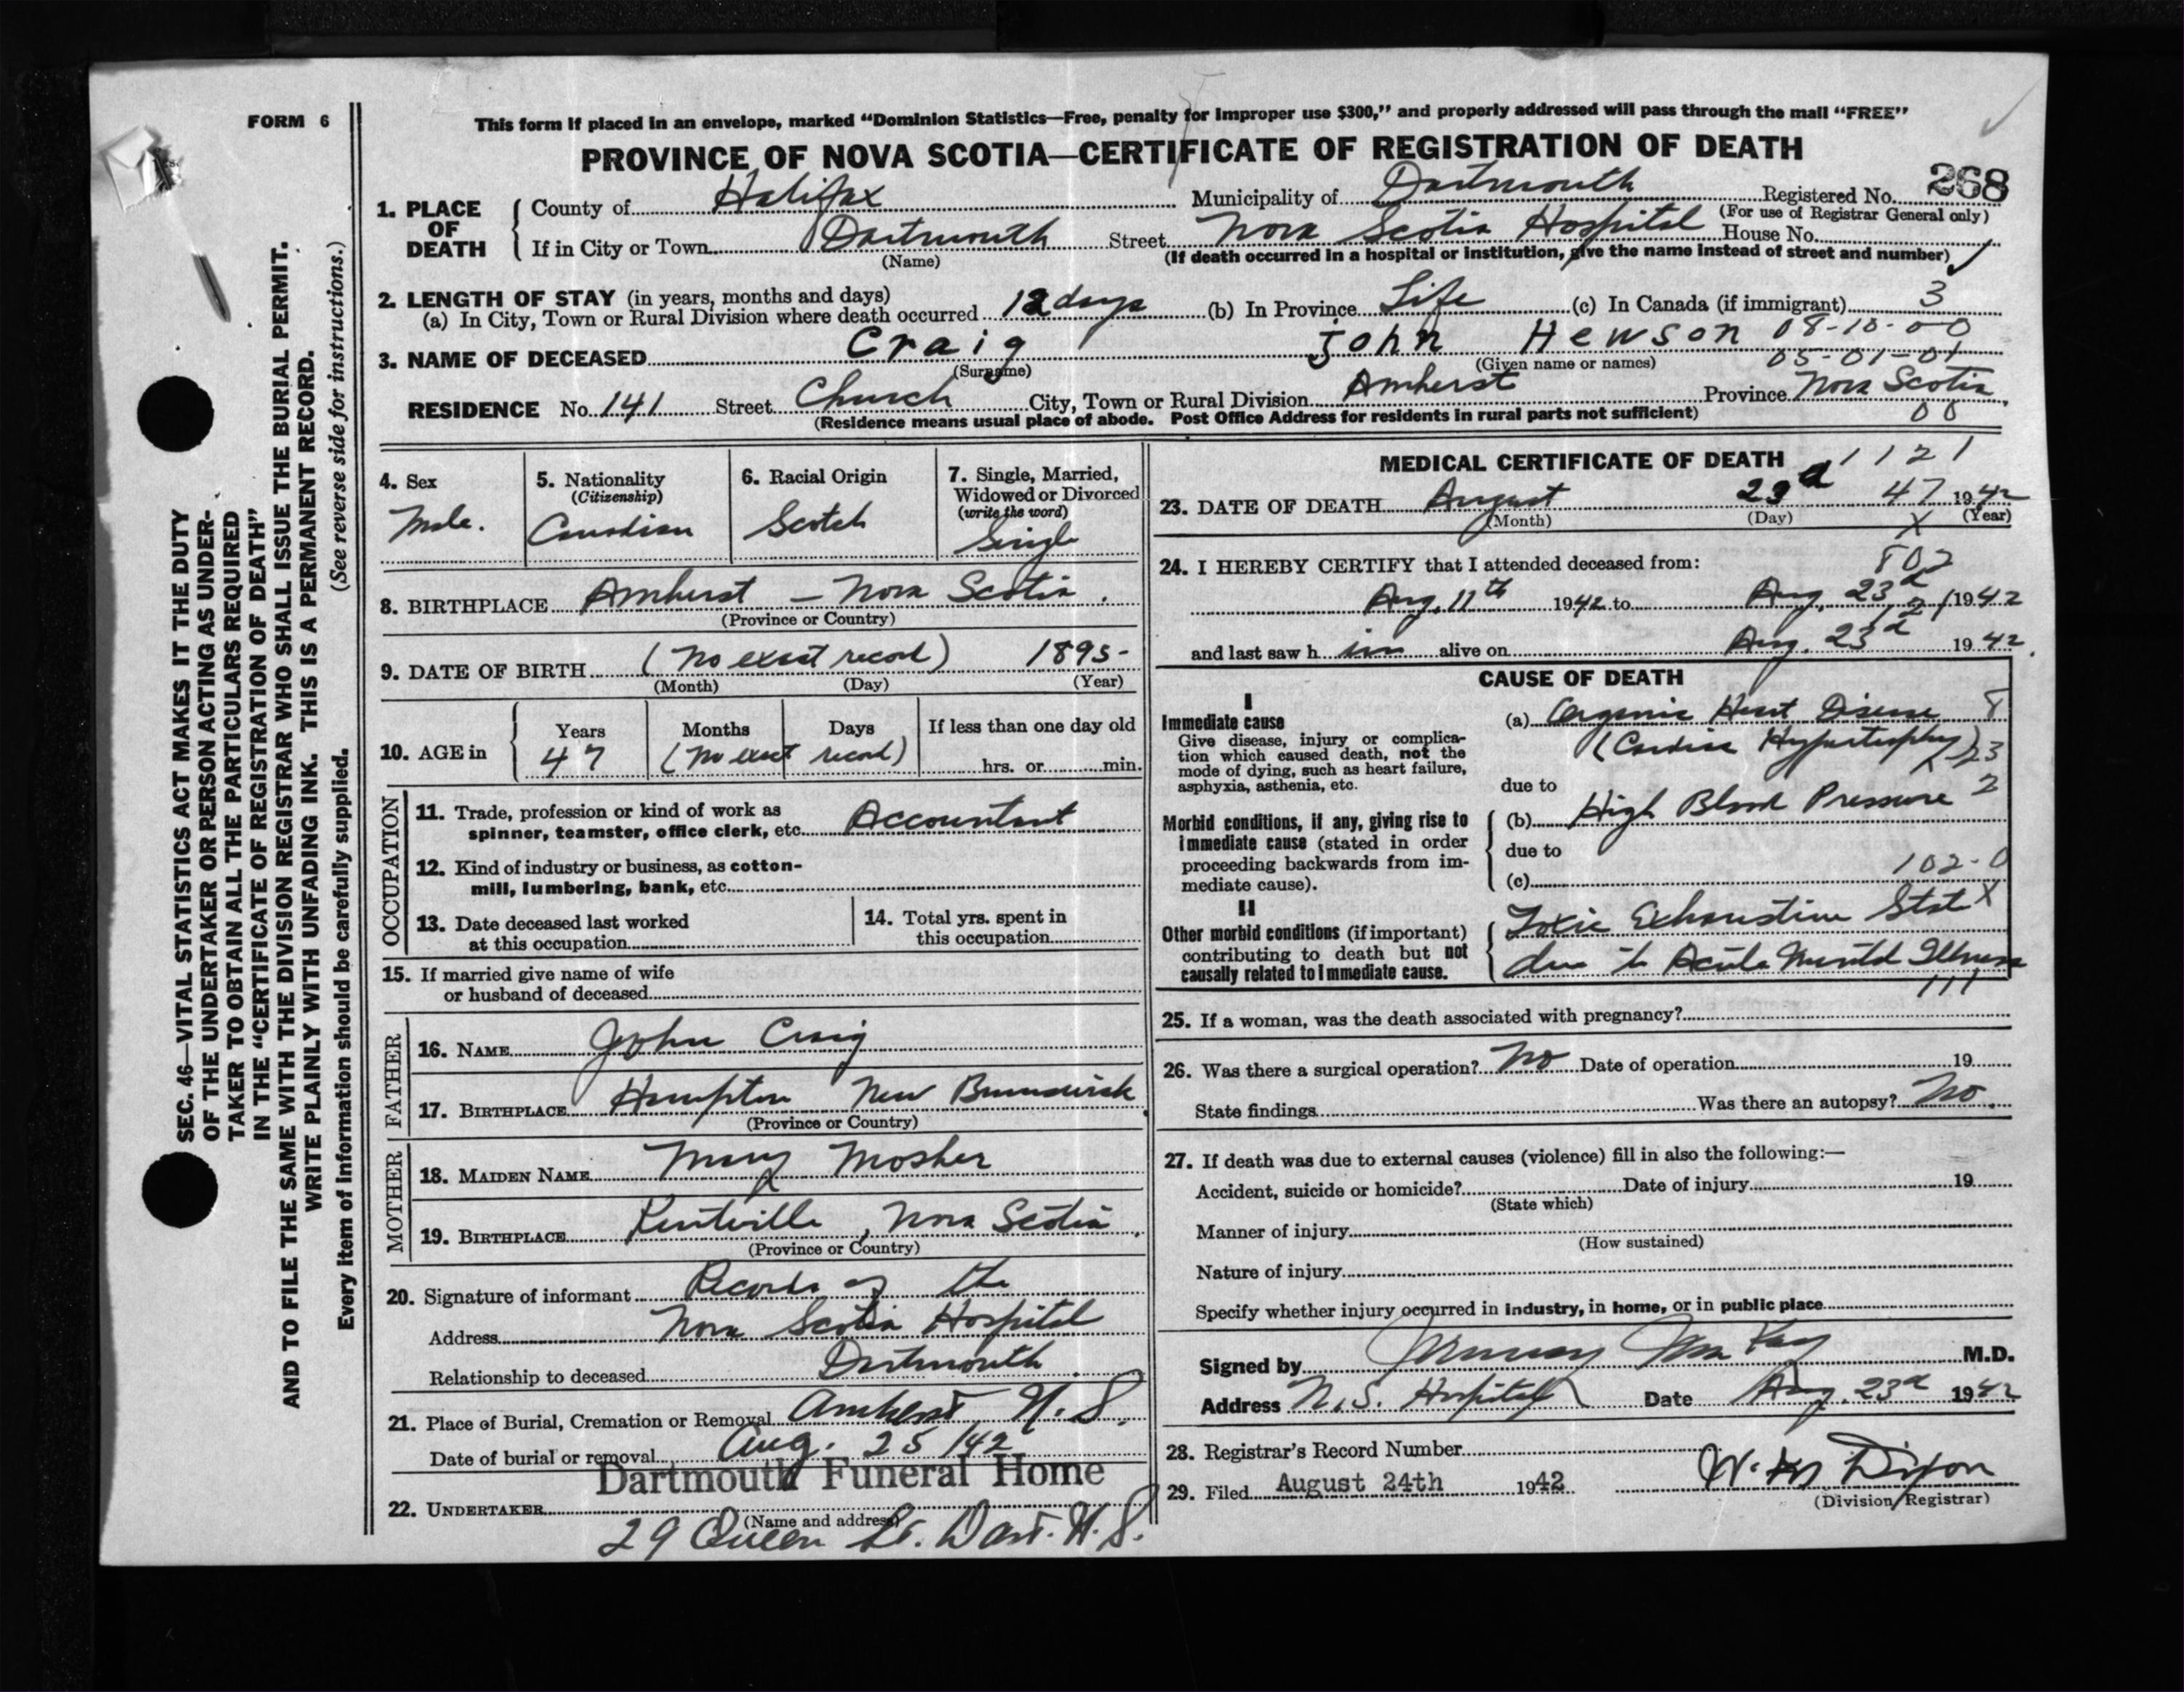 FORM 6
This form if placed in an envelope, marked "Dominion Statistics—Free, penalty for improper use $300," and properly addressed will pass through the mail "FREE"
PROVINCE OF NOVA SCOTIA—CERTIFICATE OF REGISTRATION OF DEATH
268
1. PLACE OF DEATH
County of Halifax Municipality of Dartmouth Registered No.
(For use of Registrar General only)
If in City or Town Dartmouth Street Nova Scotia Hospital House No.
(Name) (If death occurred in a hospital or institution, give the name instead of street and number)
2. LENGTH OF STAY (in years, months and days)
(a) In City, Town or Rural Division where death occurred 12 days (b) In Province Life (c) In Canada (if immigrant) 3
08-10-00
3. NAME OF DECEASED Craig John Hewson
(Surname) (Given name or names) 05-01-01
RESIDENCE No. 141 Street Church City, Town or Rural Division Amherst Province Nova Scotia
(Residence means usual place of abode. Post Office Address for residents in rural parts not sufficient) 00
4. Sex
Male.
5. Nationality
(Citizenship)
Canadian
6. Racial Origin
Scotch
7. Single, Married,
Widowed or Divorced
(write the word)
Single
8. BIRTHPLACE Amherst — Nova Scotia.
(Province or Country)
9. DATE OF BIRTH (No exact record) 1895-
(Month) (Day) (Year)
10. AGE in
Years Months Days If less than one day old
47 (No exact record) hrs. or min.
OCCUPATION
11. Trade, profession or kind of work as
spinner, teamster, office clerk, etc. Accountant
12. Kind of industry or business, as cotton-
mill, lumbering, bank, etc.
13. Date deceased last worked
at this occupation
14. Total yrs. spent in
this occupation
15. If married give name of wife
or husband of deceased
FATHER
16. NAME John Craig
17. BIRTHPLACE Hampton New Brunswick
(Province or Country)
MOTHER
18. MAIDEN NAME Mary Mosher
19. BIRTHPLACE Kentville, Nova Scotia.
(Province or Country)
20. Signature of informant Records of the
Address Nova Scotia Hospital
Relationship to deceased Dartmouth.
21. Place of Burial, Cremation or Removal Amherst, N.S.
Date of burial or removal Aug. 25/42
Dartmouth Funeral Home
22. UNDERTAKER
(Name and address)
29 Queen St. Dart. N.S.
MEDICAL CERTIFICATE OF DEATH 1121
23. DATE OF DEATH August 23d 47 1942
(Month) (Day) X (Year)
24. I HEREBY CERTIFY that I attended deceased from: 802
Aug. 11th 1942 to Aug. 23d 1942
and last saw him alive on Aug. 23d 1942.
CAUSE OF DEATH
I
Immediate cause
Give disease, injury or complica-
tion which caused death, not the
mode of dying, such as heart failure,
asphyxia, asthenia, etc.
(a) Organic Heart Disease 8
(Cardiac Hypertrophy) 23
due to
Morbid conditions, if any, giving rise to
immediate cause (stated in order
proceeding backwards from im-
mediate cause).
(b) High Blood Pressure 2
due to
(c) 102-0
II
Other morbid conditions (if important)
contributing to death but not
causally related to immediate cause.
Toxic Exhaustion State X
due to Acute Mental Illness
111
25. If a woman, was the death associated with pregnancy?
26. Was there a surgical operation? No Date of operation 19
State findings Was there an autopsy? No.
27. If death was due to external causes (violence) fill in also the following:—
Accident, suicide or homicide? Date of injury 19
(State which)
Manner of injury
(How sustained)
Nature of injury
Specify whether injury occurred in industry, in home, or in public place
Signed by Murray MacKay M.D.
Address N.S. Hospital Date Aug. 23d 1942
28. Registrar's Record Number
29. Filed August 24th 1942 Dixon
(Division Registrar)
SEC. 46—VITAL STATISTICS ACT MAKES IT THE DUTY
OF THE UNDERTAKER OR PERSON ACTING AS UNDER-
TAKER TO OBTAIN ALL THE PARTICULARS REQUIRED
IN THE "CERTIFICATE OF REGISTRATION OF DEATH"
AND TO FILE THE SAME WITH THE DIVISION REGISTRAR WHO SHALL ISSUE THE BURIAL PERMIT.
WRITE PLAINLY WITH UNFADING INK. THIS IS A PERMANENT RECORD.
Every item of information should be carefully supplied. (See reverse side for instructions.)